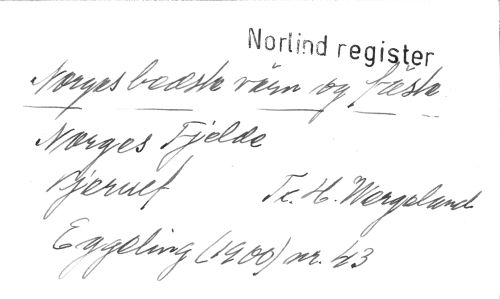 Norlind register
Norges bedste værn og fæste
Norges Fjelde
Kjerulf Tx. H. Wergeland
Eggeling (1900) nr. 43